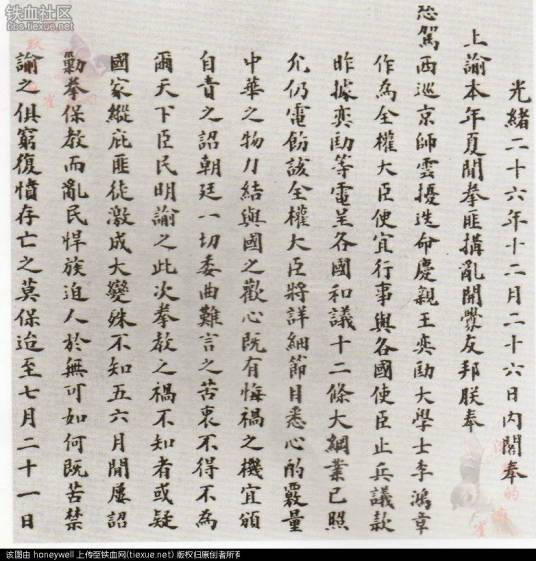 铁血社区
bbs.tiexue.net
光緒二十六年十二月二十六日內閣奉
上諭本年夏間拳匪搆亂開釁友邦朕奉
慈駕西巡京師雲擾迭命慶親王奕劻大學士李鴻章
作為全權大臣便宜行事與各國使臣止兵議款
昨據奕劻等電呈各國和議十二條大綱業已照
允仍電飭該全權大臣將詳細節目悉心酌覈量
中華之物力結與國之歡心既有悔禍之機宜頒
自責之詔朝廷一切委曲難言之苦衷不得不為
爾天下臣民明諭之此次拳教之禍不知者或疑
國家縱庇匪徒激成大變殊不知五六月間屢詔
勦拳保教而亂民悍族迫人於無可如何既苦禁
諭之俱窮復憤存亡之莫保迨至七月二十一日
该图由 honeywell 上传至铁血网(tiexue.net) 版权归原创者所有